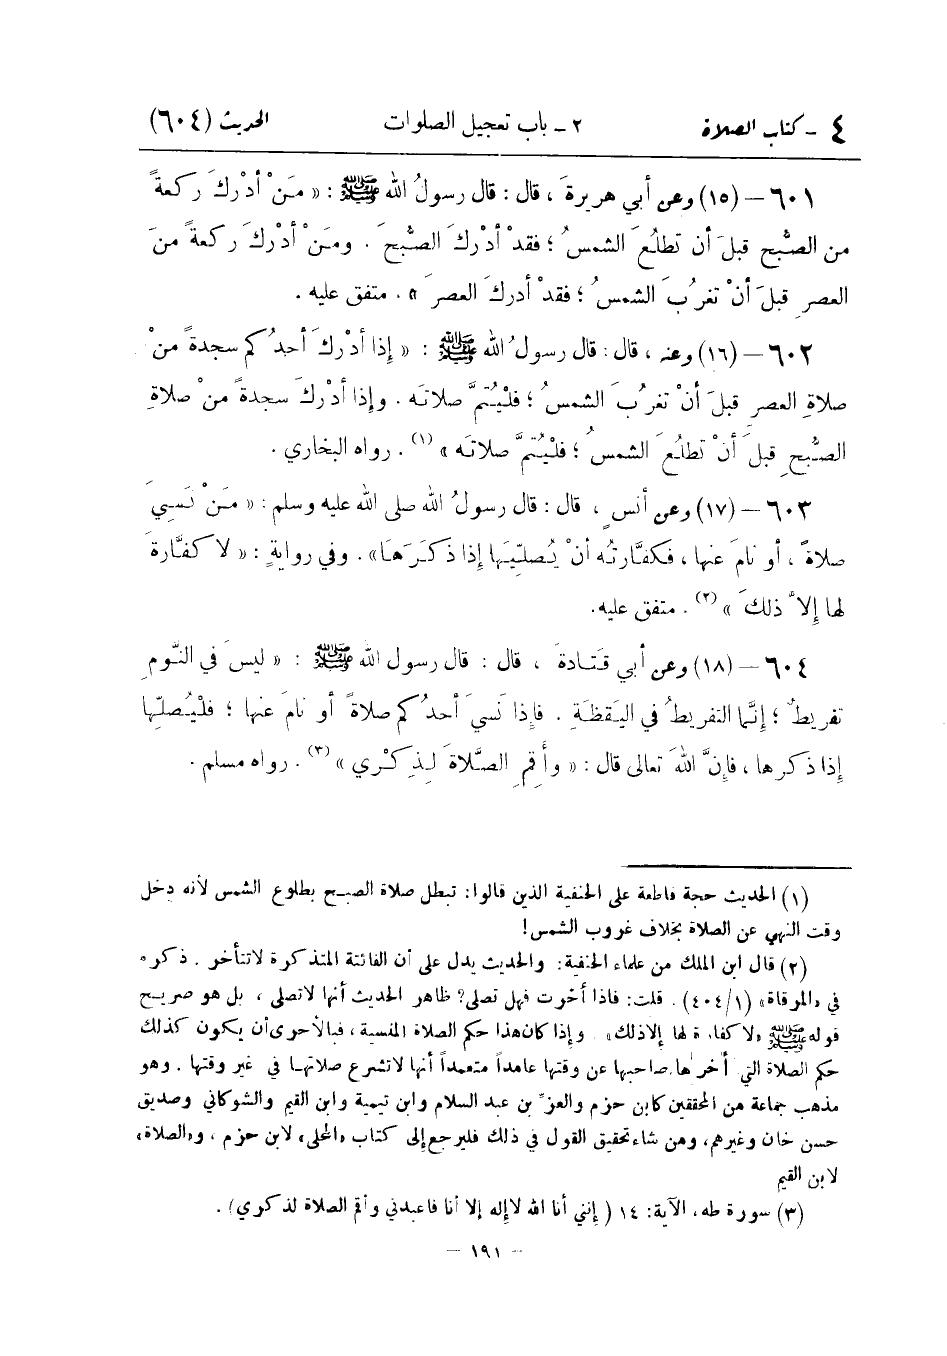 ٤ ـ كتاب الصلاة ٢ ـ باب تعجيل الصلوات الحديث (٦٠٤)
٦٠١ – (١٥) وعن أبي هريرةَ ، قال : قال رسولُ الله ﷺ : « مَنْ أدْركَ ركعةً
من الصُّبح قبلَ أن تطلُعَ الشمسُ ؛ فقدْ أدْركَ الصُّبحَ . ومَنْ أدْركَ ركعةً منَ
العصرِ قبلَ أنْ تغرُبَ الشمسُ ؛ فقدْ أدركَ العصرَ » . متفق عليه .
٦٠٢ – (١٦) وعنه ، قال : قال رسولُ الله ﷺ : « إذا أدْركَ أحدُكم سجدةً منْ
صلاةِ العصرِ قبلَ أنْ تغرُبَ الشمسُ ؛ فلْيُتمَّ صلاتَه . وإذا أدْركَ سجدةً منْ صلاةِ
الصُّبحِ قبلَ أنْ تطلُعَ الشمسُ ؛ فلْيُتمَّ صلاتَه » (١) . رواه البخاري .
٦٠٣ – (١٧) وعن أنسٍ ، قال : قال رسولُ الله صلى الله عليه وسلم : « مَنْ نَسِيَ
صلاةً ، أو نامَ عنها ، فكفَّارتُه أنْ يُصلِّيَها إذا ذكَرَهَا» . وفي روايةٍ : « لا كفَّارةَ
لها إلاَّ ذلكَ » (٢) . متفق عليه.
٦٠٤ – (١٨) وعن أبي قَتادةَ ، قال : قال رسول الله ﷺ : « ليسَ في النَّومِ
تفريطٌ ؛ إنَّما التفريطُ في اليَقظةِ . فإذا نَسيَ أحدُكم صلاةً أو نامَ عنها ؛ فلْيُصلِّها
إذا ذكرها ، فإنَّ اللهَ تعالى قال : « وأَقِمِ الصَّلاةَ لِذِكْري » (٣) . رواه مسلم .
(١) الحديث حجة قاطعة على الحنفية الذين قالوا: تبطل صلاة الصبح بطلوع الشمس لأنه دخل
وقت النهي عن الصلاة بخلاف غروب الشمس!
(٢) قال ابن الملك من علماء الحنفية: والحديث يدل على أن الفائتة المتذكرة لاتتأخر . ذكره
في «المرقاة» (١/٤٠٤) . قلت: فاذا أخرت فهل تصلى؟ ظاهر الحديث أنها لاتصلى ، بل هو صريح
قوله ﷺ «لا كفارة لها إلاذلك» وإذا كان هذا حكم الصلاة المنسية ، فبالأحرى أن يكون كذلك
حكم الصلاة التي أخرها صاحبها عن وقتها عامداً متعمداً أنها لاتشرع صلاتها في غير وقتها . وهو
مذهب جماعة من المحققين كابن حزم والعزّ بن عبد السلام وابن تيمية وابن القيم والشوكاني وصديق
حسن خان وغيرهم، ومن شاء تحقيق القول في ذلك فليرجع إلى كتاب «المحلى» لابن حزم ، و«الصلاة»
لابن القيم
(٣) سورة طه، الآية: ١٤ ( إنني أنا الله لاإله إلا أنا فاعبدني وأقم الصلاة لذكري) .
– ١٩١ –